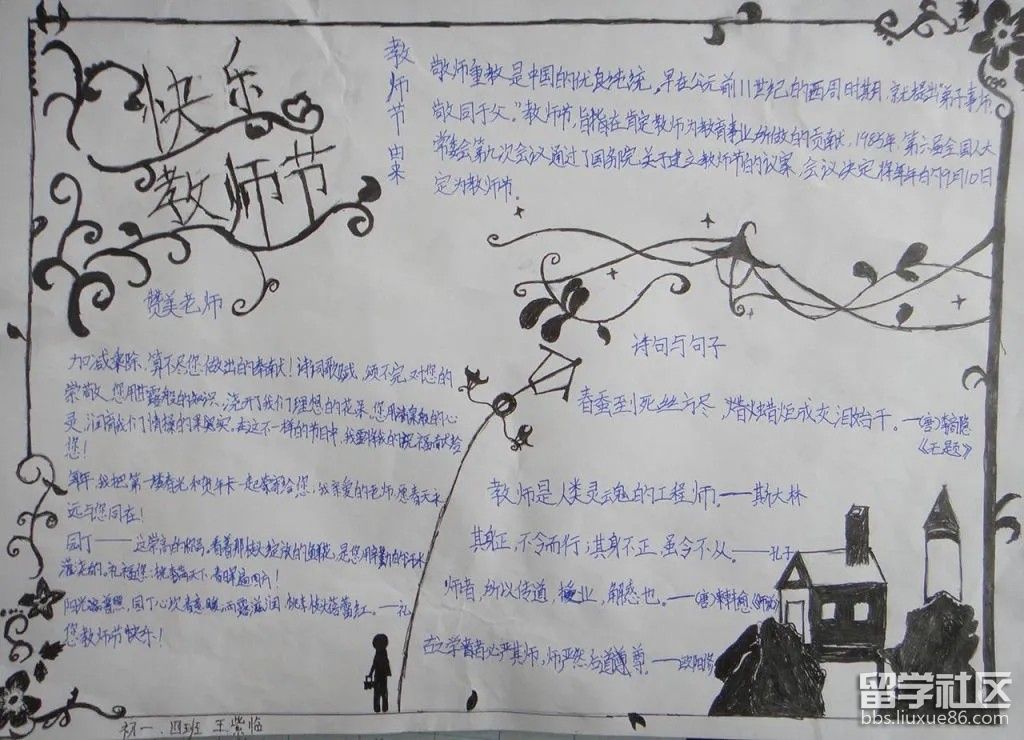 快乐
教师节
教师节由来
敬师重教是中国的优良传统。早在公元前11世纪的西周时期,就提出"弟子事师,
敬同于父。"教师节,旨在肯定教师为教育事业所做的贡献。1985年,第六届全国人大
常委会第九次会议通过了国务院关于建立教师节的议案,会议决定将每年的9月10日
定为教师节。
赞美老师
加减乘除,算不尽您做出的奉献!诗词歌赋,颂不完对您的
崇敬。您用甘露般的知识,浇开了我们理想的花朵,您用清泉般的心
灵,润育我们情操的果实。在这不一样的节日中,我要将我的祝福献给
您!
每年,我把第一缕春光和贺年卡一起寄给您,我亲爱的老师,愿春天永
远与您同在!
园丁——这崇高的称号。看着那做绽放的鲜花,是您用辛勤的汗水
灌浇的。礼福您:桃李满天下,春晖遍四方!
阳光普照,园丁心坎春意暖,雨露滋润
您教师节快乐!
诗句与句子
春蚕到死丝方尽,蜡炬成灰泪始干。——(唐)李商隐
《无题》
教师是人类灵魂的工程师。——斯大林
其身正,不令而行;其身不正,虽令不从。——孔子
师者,所以传道,授业,解惑也。——(唐)韩愈《师说》
古之学者必严其师,师严然后道尊。——欧阳修
初一.四班 王紫临
留学社区
bbs.liuxue86.com